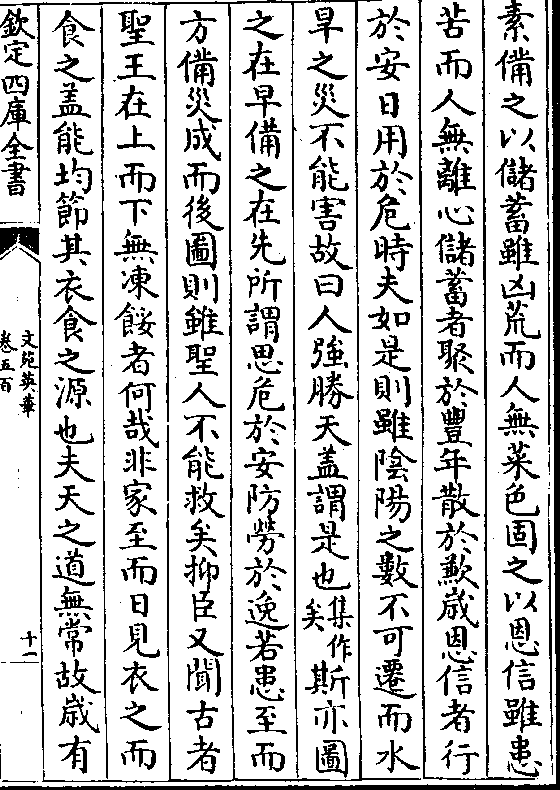 素備之以儲蓄雖凶荒而人無菜色固之以恩信雖患
苦而人無離心儲蓄者聚於豐年散於歉歲恩信者行
於安日用於危時夫如是則雖陰陽之數不可遷而水
旱之災不能害故曰人強勝天盖謂是也集作矣斯亦圖
之在早備之在先所謂思危於安防勞於逸若患至而
方備災成而後圖則雖聖人不能救矣抑臣又聞古者
聖王在上而下無凍餒者何哉非家至而日見衣之而
食之盖能均節其衣食之源也夫天之道無常故歲有
欽定四庫全書
文苑英華
卷五百
十一